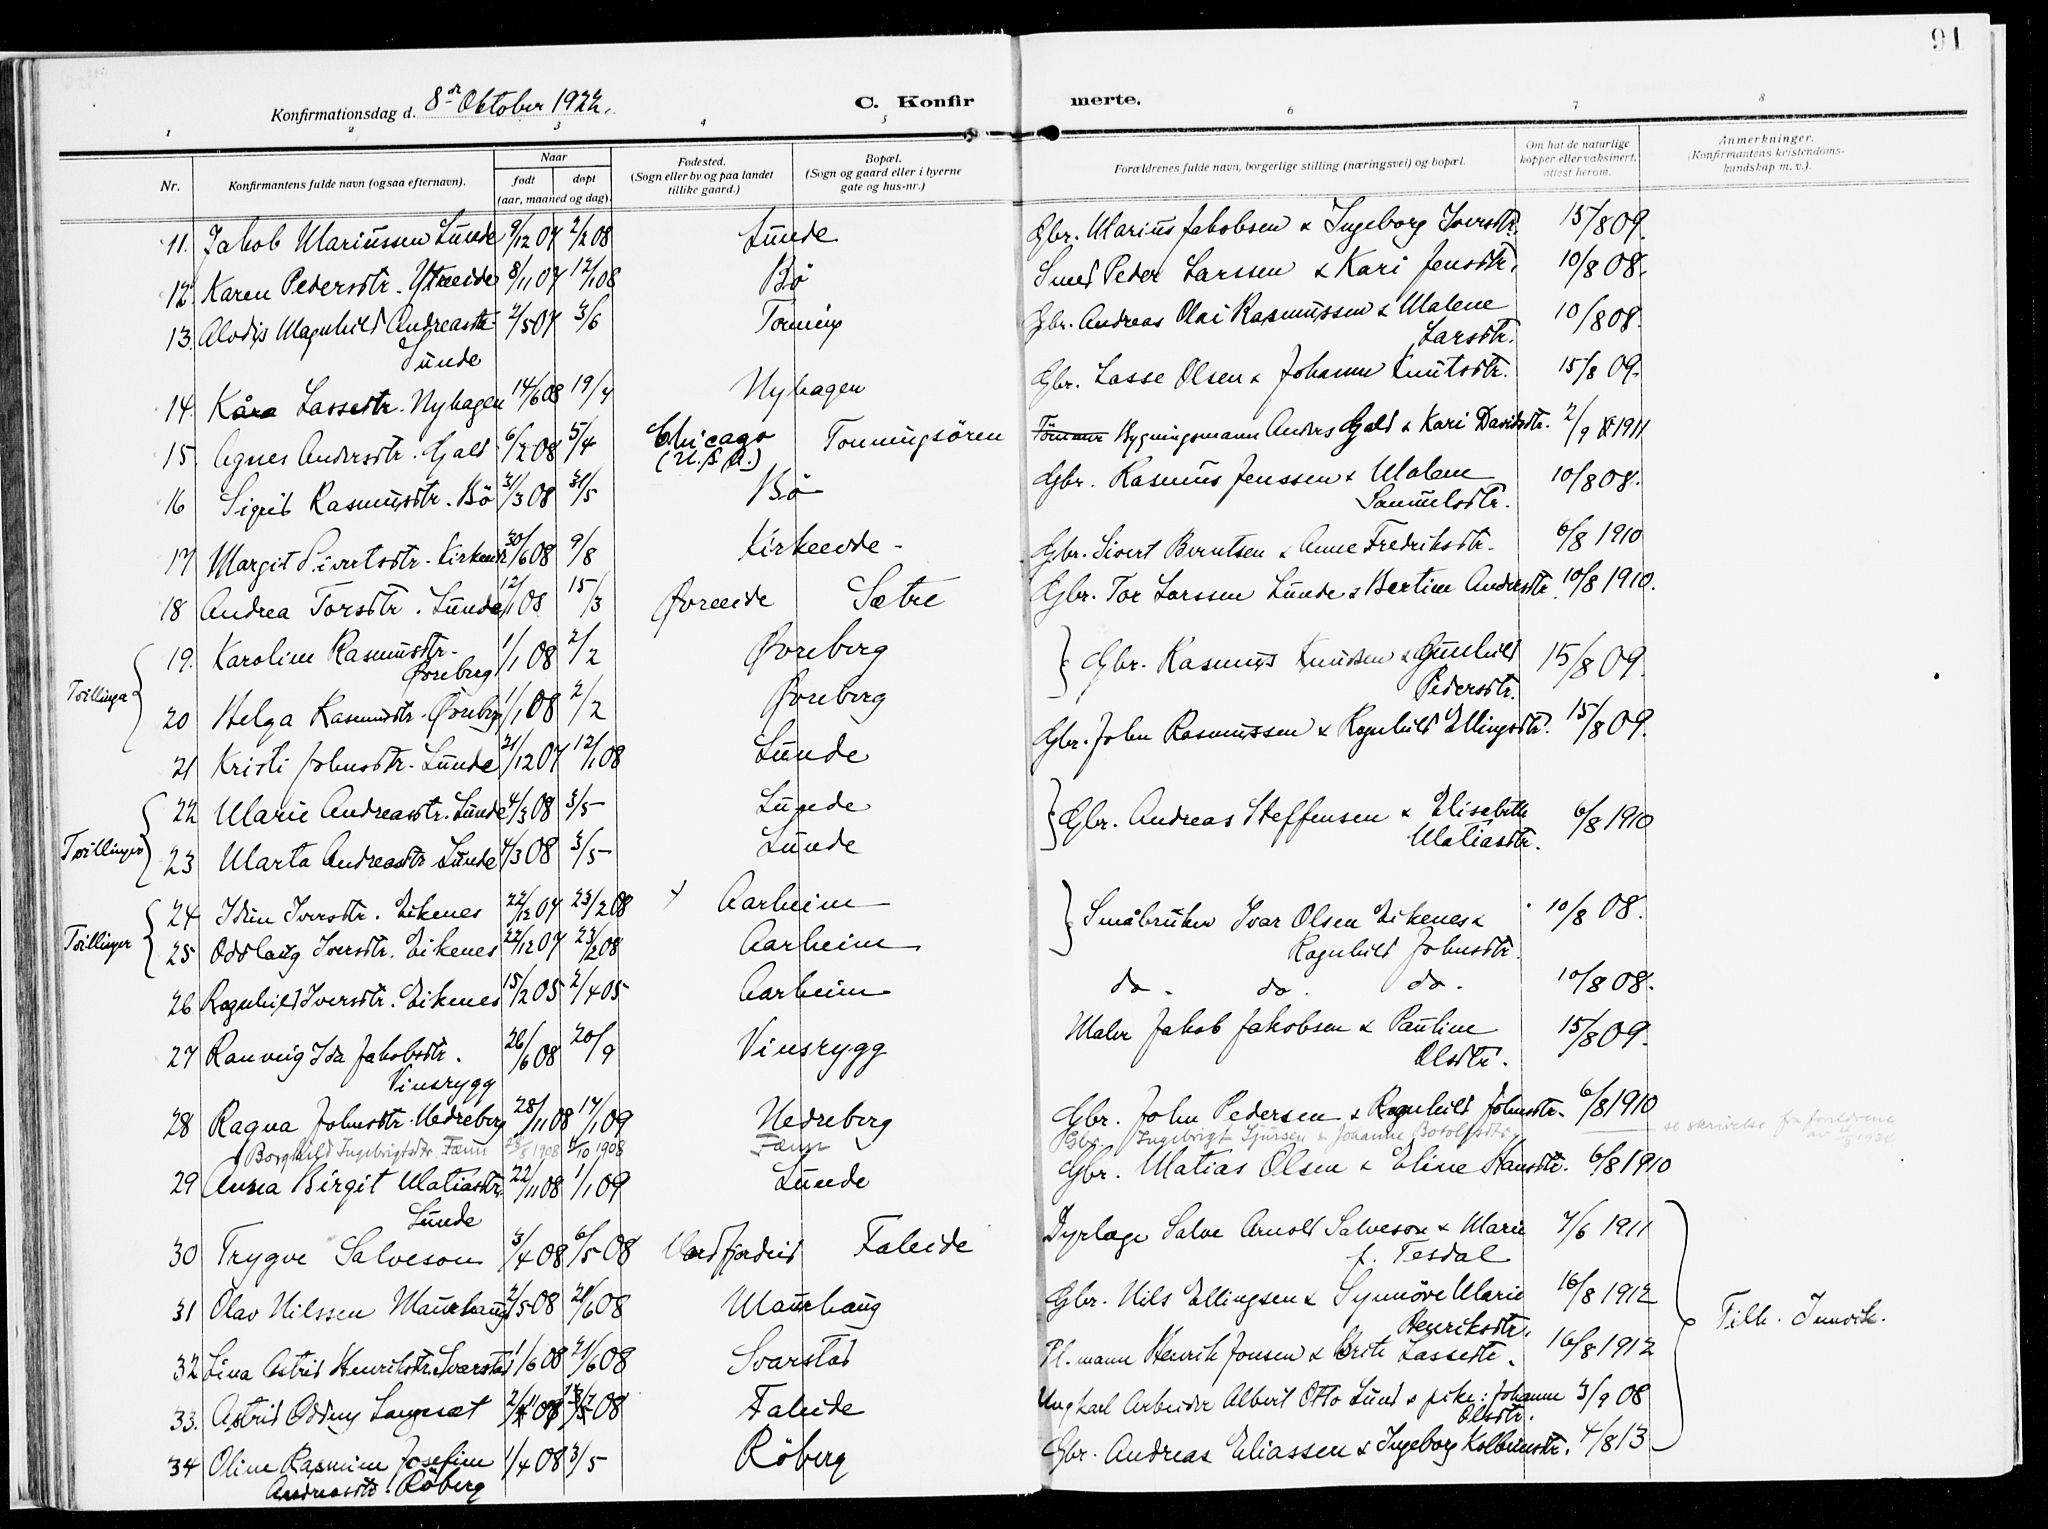 91
Konfirmationsdag d. 8de Oktober 1922.
C. Konfir merte.
1 2 3 4 5 6 7 8
Nr.
Konfirmantens fulde navn (ogsaa efternavn).
Naar
født døpt
(aar, maaned og dag).
Fødested.
(Sogn eller by og paa landet
tillike gaard.)
Bopæl.
(Sogn og gaard eller i byerne
gate og hus-nr.)
Forældrenes fulde navn, borgerlige stilling (næringsvei) og bopæl.
Om hat de naturlige
kopper eller vaksinert,
attest herom.
Anmerkninger.
(Konfirmantens kristendoms-
kundskap m. v.).
11. Jakob Mariussen Lunde 9/12 07 2/2 08 Lunde Gbr. Marius Jakobsen & Ingeborg Iversdtr. 15/8 09.
12. Karen Pedersdtr. Ytreeide 8/11 07 12/1 08 Bö Smed Peder Larssen & Kari Jensdtr. 10/8 08.
13. Alvdis Magnhild Andreasdtr. 2/5 07 3/6 Tonning Gbr. Andreas Olai Rasmussen & Malene 10/8 08.
Lunde Larsdtr.
14. Kåra Lassedtr. Nyhagen 14/6 08 19/7 Nyhagen Gbr. Lasse Olsen & Johanne Knutsdtr. 15/8 09.
15. Agnes Andersdtr. Gald 6/2 08 5/4 Chicago Tonningsören Bygningsmann Anders Gald & Kari Davidsdtr. 2/9 1911
(U.S.A.)
16 Sigrid Rasmusdtr. Bö 31/3 08 31/5 Bö Gbr. Rasmus Jenssen & Malene 10/8 08.
Samuelsdtr.
17 Margit Sivertsdtr. Kirkeeide 30/6 08 9/8 Kirkeeide Gbr. Sivert Berntsen & Anne Fredriksdtr. 6/8 1910
18 Andrea Torsdtr. Lunde 12/1 08 15/3 Øvreeide Sætre Gbr. Tor Larssen Lunde & Bertine Andersdtr. 10/8 1910.
Tvillinga
19. Karoline Rasmusdtr. 1/1 08 2/2 Øvreberg Gbr. Rasmus Knudsen & Gunhild 15/8 09.
Øvreberg Pedersdtr.
20 Helga Rasmusdtr. Øvreberg 1/1 08 2/2 Øvreberg
21 Kristi Johnsdtr. Lunde 21/12 07 12/1 08 Lunde Gbr. John Rasmussen & Ragnhild Ellingsdtr. 15/8 09.
Tvillinger
22 Marie Andreasdtr. Lunde 4/3 08 3/5 Lunde Gbr. Andreas Steffensen & Elisebeth 6/8 1910
23 Marta Andreasdtr. Lunde 4/3 08 3/5 Lunde Matiasdtr.
Tvillinger
24 Idun Iversdtr. Eikenes 22/12 07 23/2 08 Aarheim Småbruker Ivar Olsen Eikenes & 10/8 08.
25 Oddlaug Iversdtr. Eikenes 22/12 07 23/2 08 Aarheim Ragnhild Johnsdtr.
26 Ragnhild Iversdtr. Eikenes 15/2 05 2/4 05 Aarheim do. do. do. 10/8 08.
27 Ranveig Ida Jakobsdtr. 26/6 08 20/9 Vinsrygg Maler Jakob Jakobsen & Pauline 15/8 09.
Vinsrygg Olsdtr.
28 Ragna Johnsdtr. Nedreberg 28/11 08 17/1 09 Nedreberg Gbr. John Pedersen & Ragnhild Johnsdtr. 6/8 1910
Borghild Ingebrigtsdtr. Fænn 28/8 1908 4/10 1908 Fænn Gbr. Ingebrigt Sjursen & Johanne Botolfsdtr. se skrivelse fra foreldrene
29 Anna Birgit Matiasdtr. 22/11 08 1/1 09 Lunde Gbr. Matias Olsen & Eline Hansdtr. 6/8 1910
Lunde
30 Trygve Salveson 3/4 08 6/5 08 Nordfjordeid Faleide Dyrlæge Salve Arnold Salveson & Marie 7/6 1911
f. Tesdal
31 Olav Nilssen Maurhaug 2/5 08 21/6 08 Maurhaug Gbr. Nils Ellingsen & Synnöve Marie 16/8 1912 Tilh. Innvik.
Henriksdtr.
32 Lina Astrid Henriksdtr. Svarstad 1/6 08 21/6 08 Svarstad Pl. mann Henrik Jonsen & Brite Lassedtr. 16/8 1912
33. Astrid Oddny Langset Faleide Ungkarl Arbeider Albert Otto Lund & pike: Johanne 3/9 08
Olsdtr.
34 Oline Rasmine Josefine 1/4 08 3/5 Röberg Gbr. Andreas Eliassen & Ingeborg Kolbeinsdtr. 4/8 13
Andreasdtr. Röberg